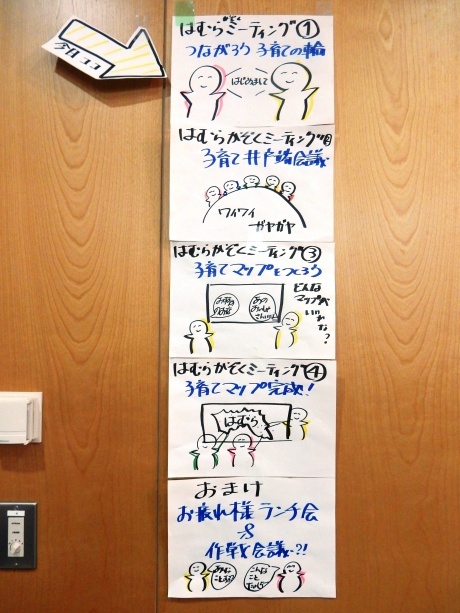 今日ココ
はむらミーティング①
かぞく
つながろう 子育ての輪
はじめまして
はむらかぞくミーティング②
子育て井戸端会議
ワイワイ
ガヤガヤ
はむらかぞくミーティング③
子育てマップをつくろう
どんな
マップが
いいかな?
はむらかぞくミーティング④
子育てマップ完成!
はむら
おまけ
お疲れ様ランチ会
&
作戦会議?!
こんな
こと